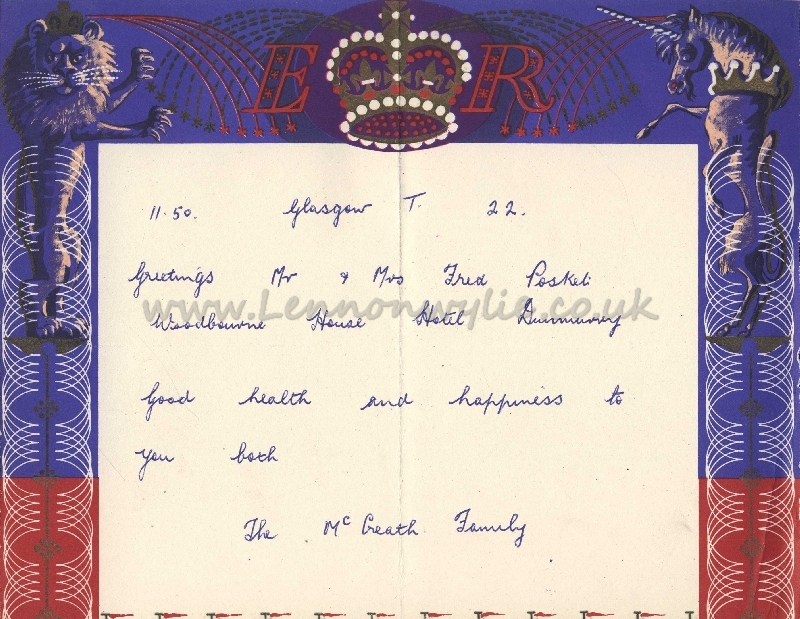 E R
11.50. Glasgow T. 22.
Greetings Mr & Mrs Fred Posket
www.Lennonwylie.co.uk
Woodbourne House Hotel Dunmurry
Good health and happiness to
you both
The McCreath Family